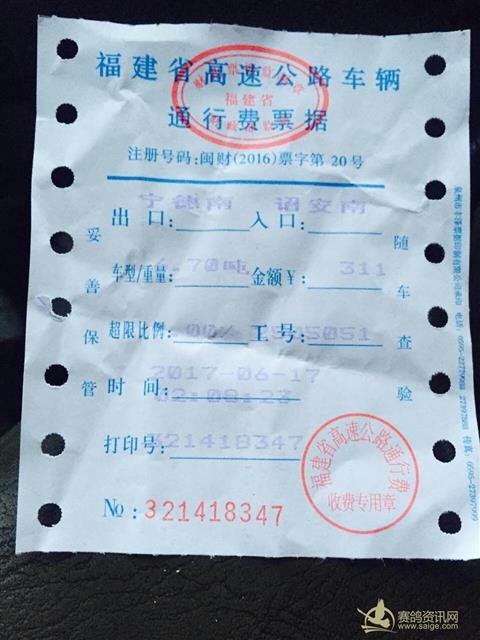 福建省高速公路车辆
福建省
通行费票据
注册号码:闽财(2016)票字第20号
宁德南 诏安南
出口: 入口:
6.70吨 311
车型/重量: 金额¥:
.00% 5051
超限比例: 工号:
2017-06-17
时间:
02:08:23
打印号: 321418347
№: 321418347
妥善保管
随车查验
福建省高速公路通行费
收费专用章
赛鸽资讯网
www.saige.com